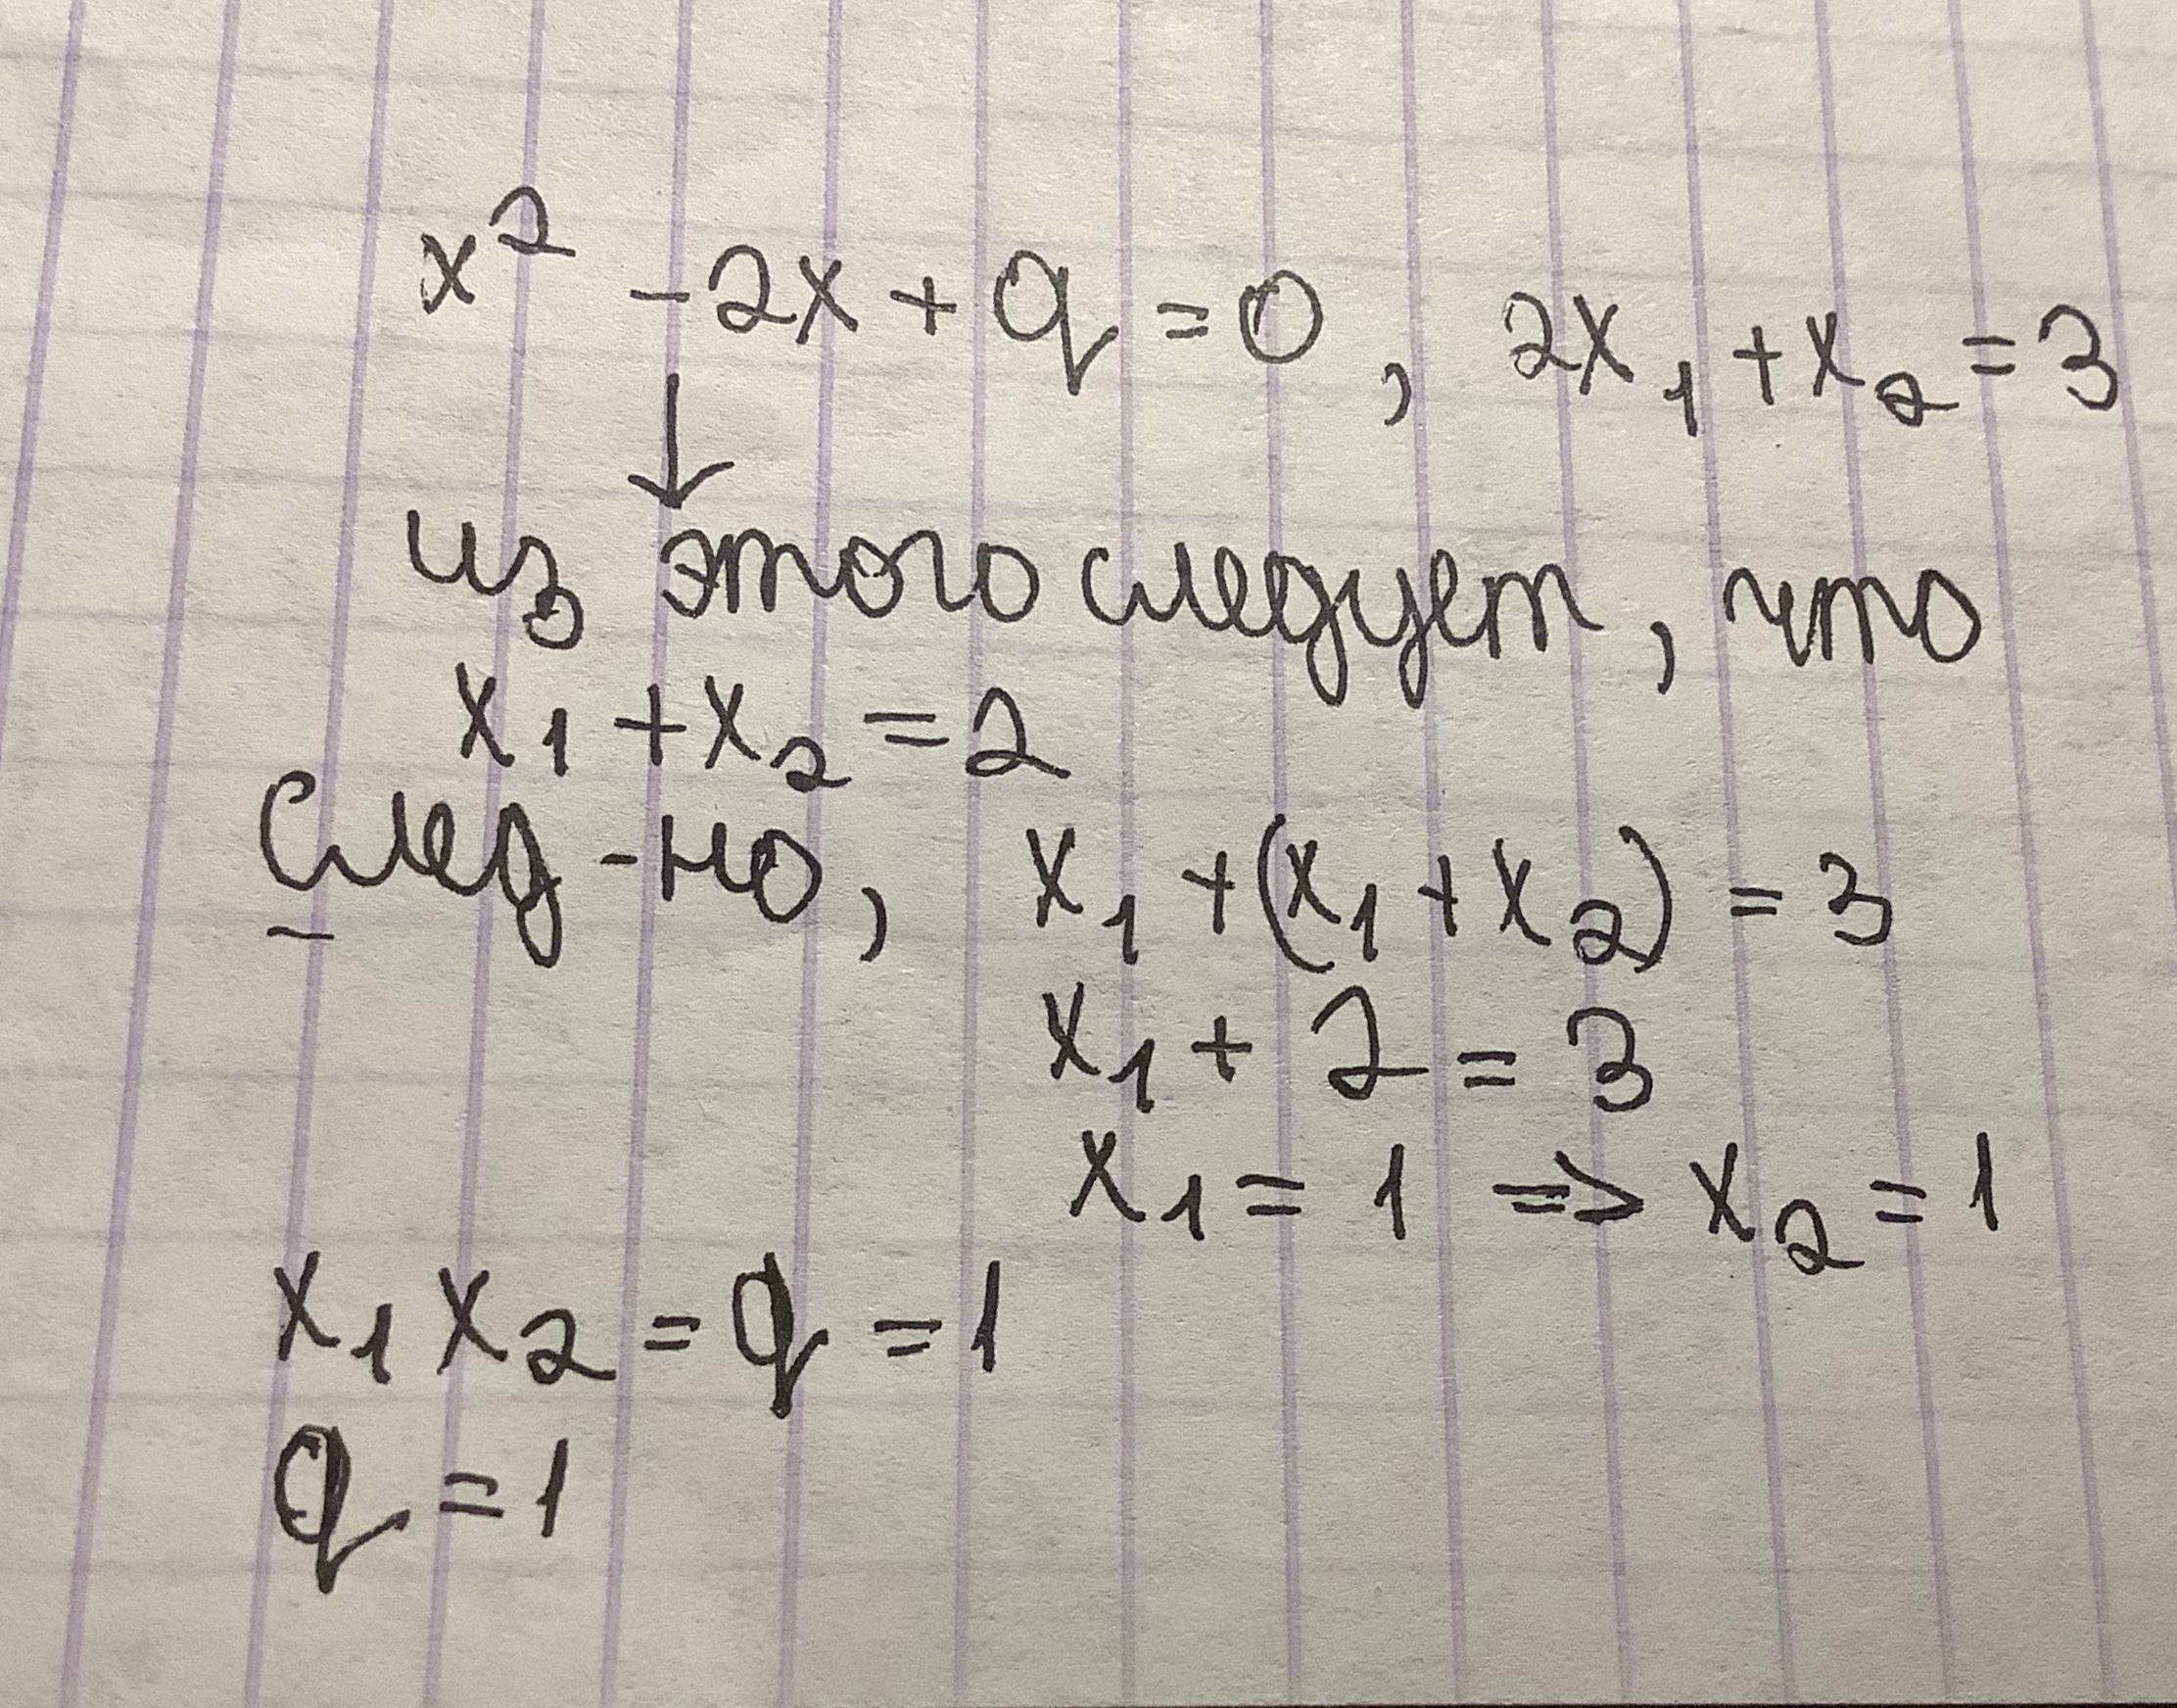 x² - 2x + q = 0, 2x₁ + x₂ = 3
↓
из этого следует, что
x₁ + x₂ = 2
След-но, x₁ + (x₁ + x₂) = 3
x₁ + 2 = 3
x₁ = 1 => x₂ = 1
x₁ x₂ = q = 1
q = 1